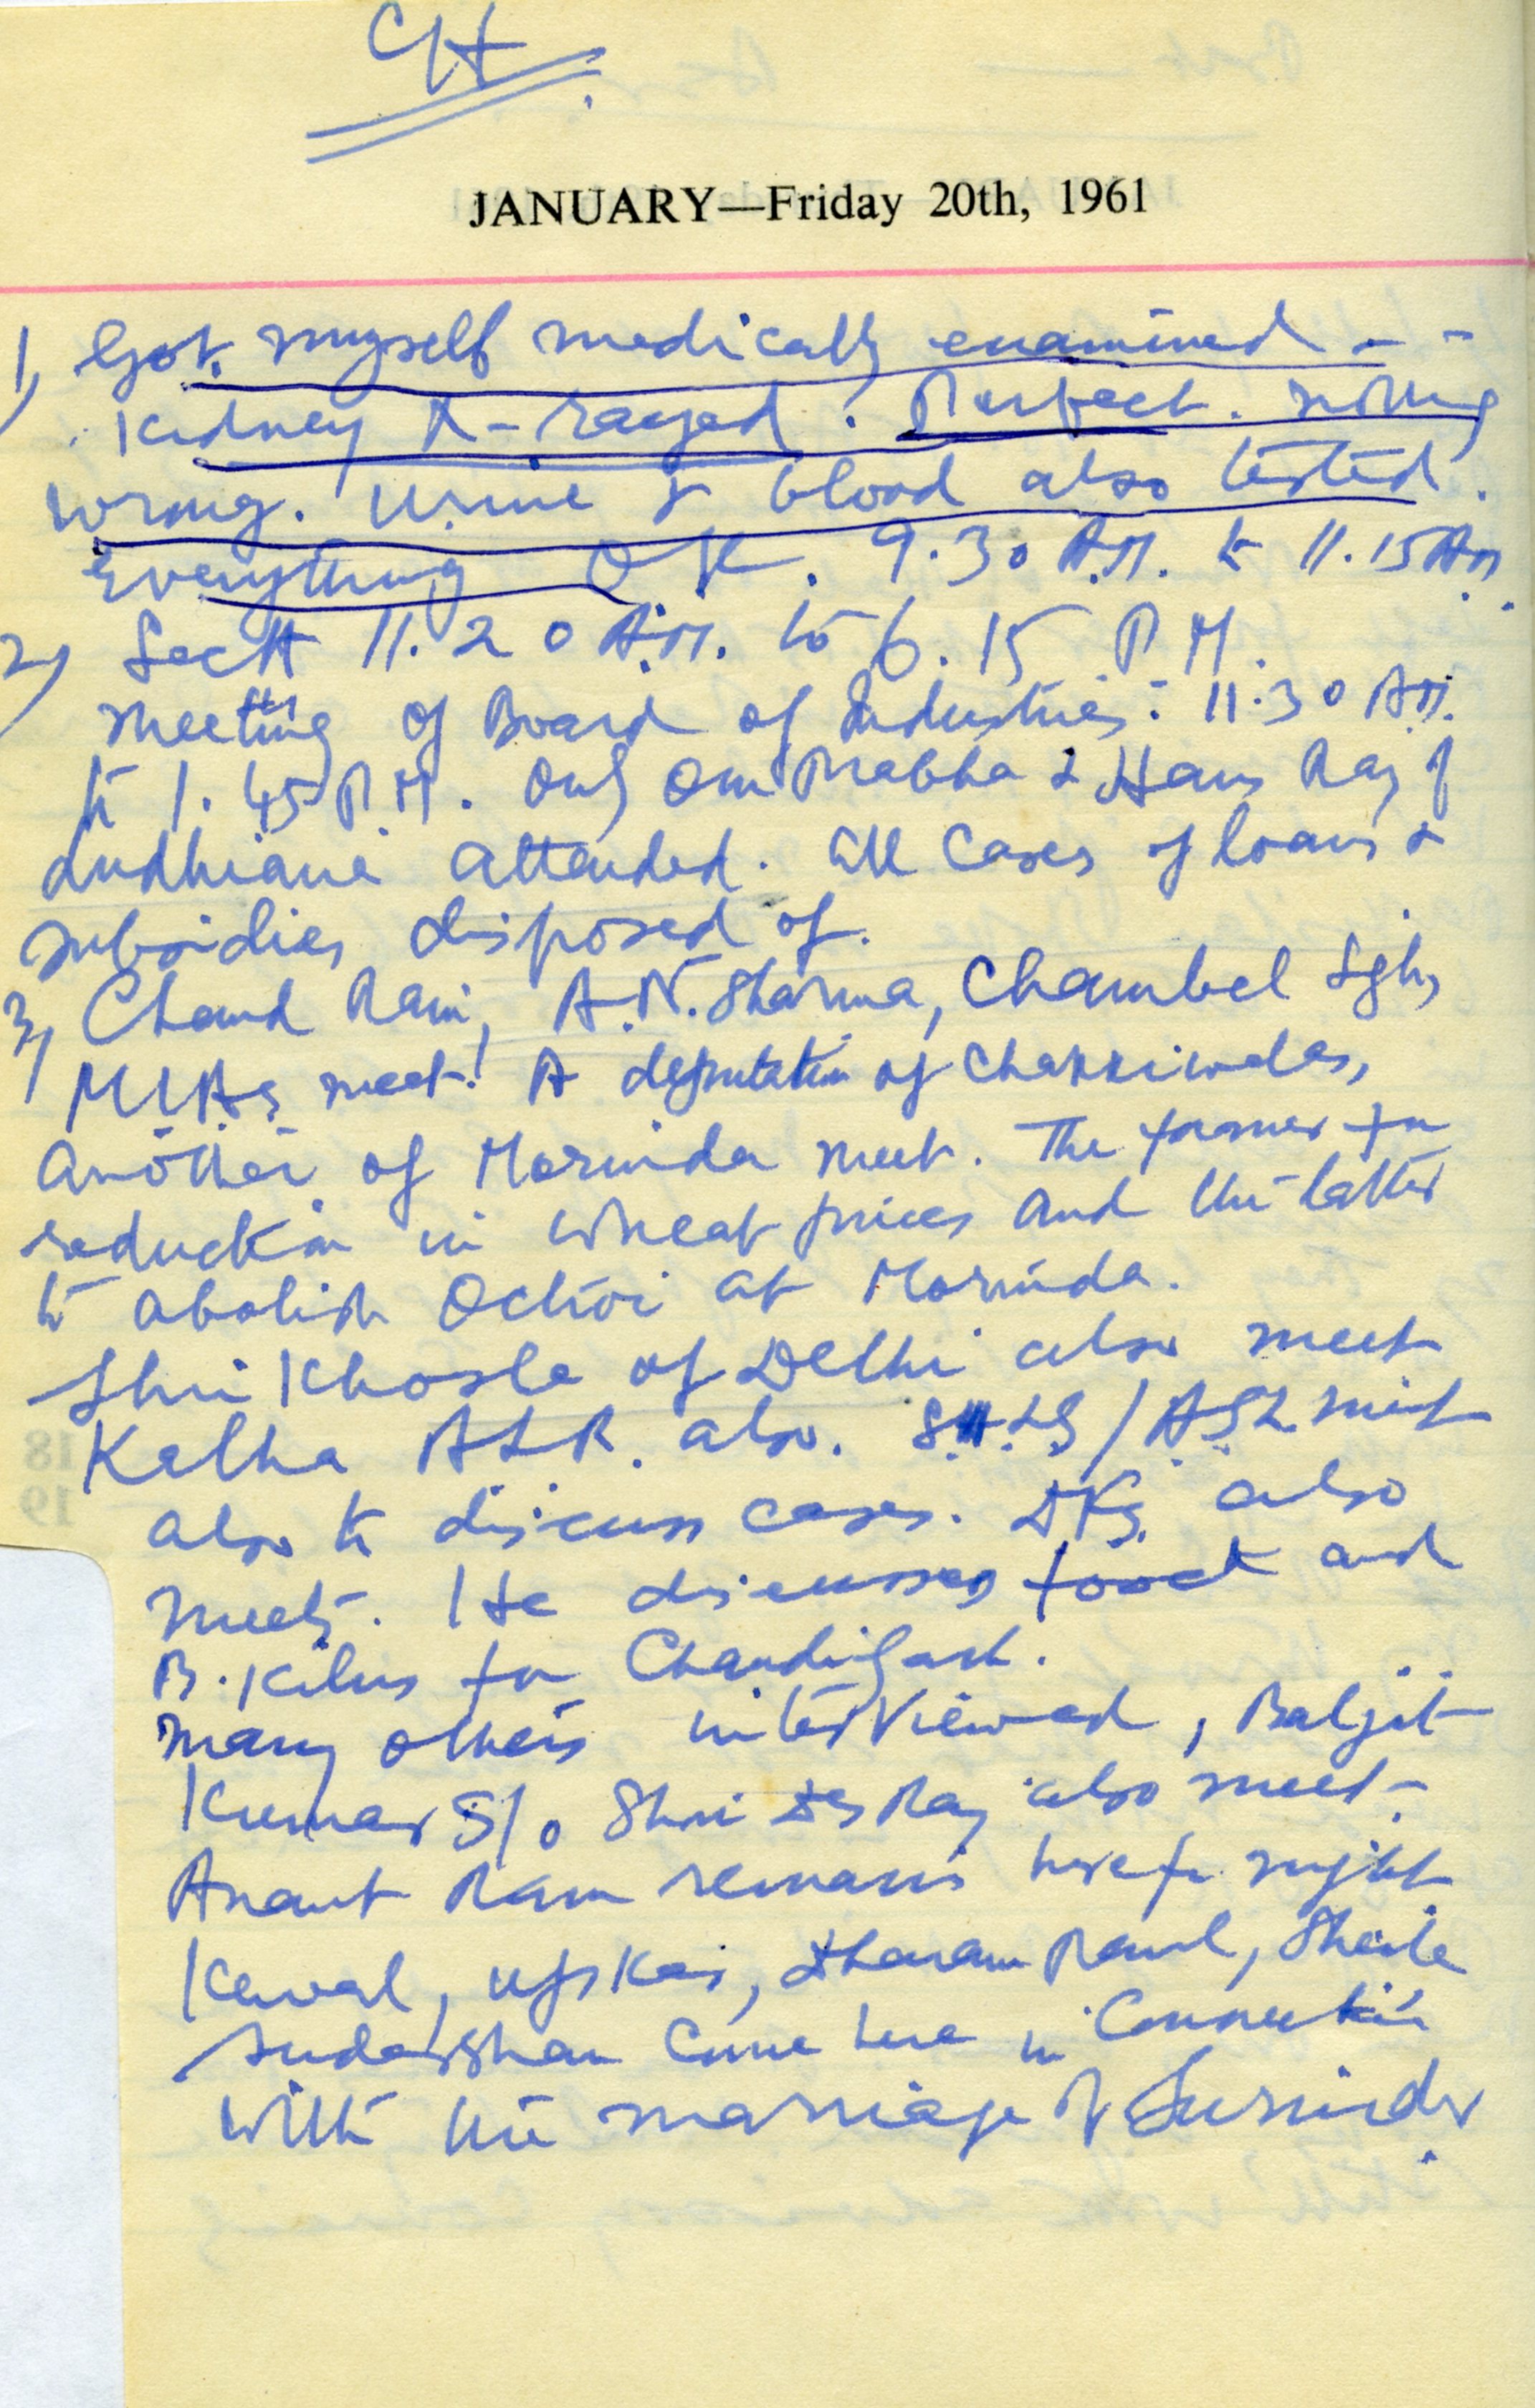 CH
JANUARY—Friday 20th, 1961
1, Got myself medically examined - -
Kidney X-rayed. Perfect. nothing
wrong. Urine & blood also tested.
Everything OK. 9.30 A.M. to 11.15 A.M.
2, Sectt 11.20 A.M. to 6.15 P.M.
Meeting of Board of Industries: 11.30 A.M.
to 1.45 P.M. Only Om Prabha & Hans Raj of
Ludhiana attended. All cases of loans &
subsidies disposed of.
3, Chand Ram, A.N. Sharma, Chambel Sgh,
MLAs meet. A deputation of Chakkiwalas,
another of Morinda meet. The former for
reduction in wheat prices and the latter
to abolish Octroi at Morinda.
Shri Khosla of Delhi also meet
Kalha A.L.R. also. LS/AS2 meet
also to discuss cases. DFS also
meets. He discusses and
B. Kilns for Chandigarh.
Many others interviewed, Baljit
Kumar S/o Shri Des Raj also meet.
Anant Ram remains here for night
Kewal, Upkar, Dharam Paul, Sheila
Sudarshan Come here in connection
with the marriage of Surinder.
18
19